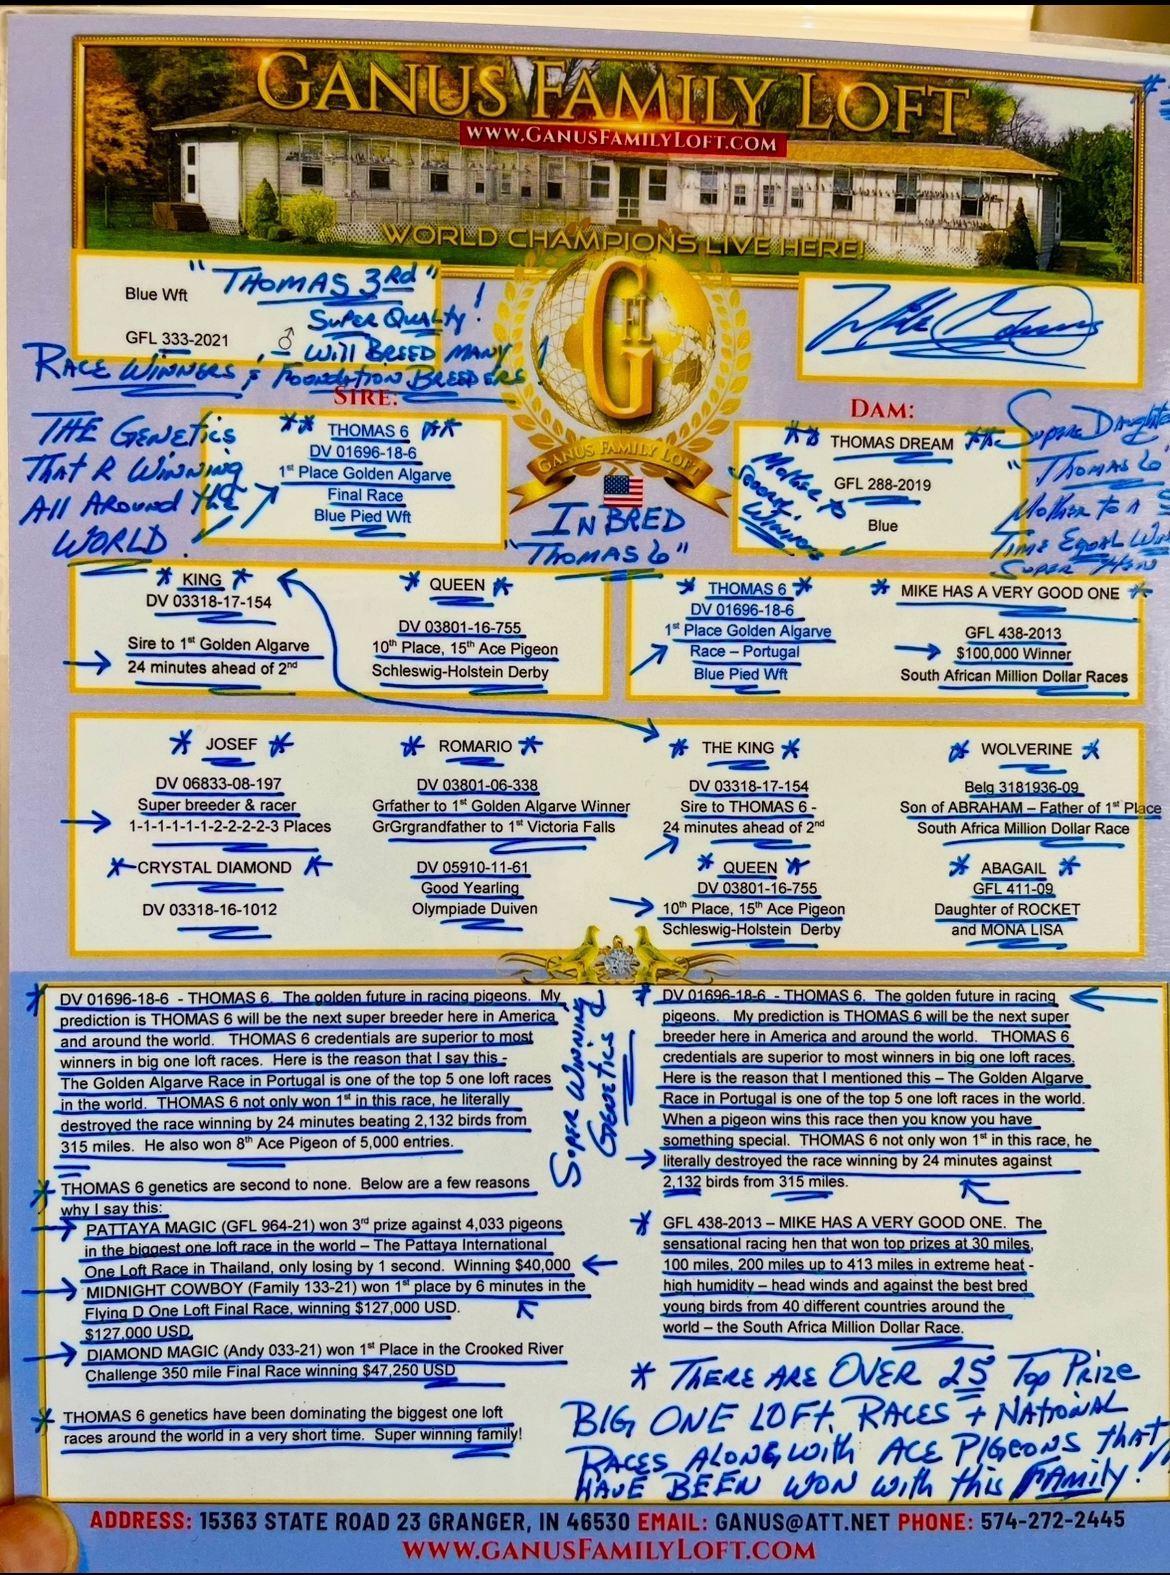 GANUS FAMILY LOFT
WWW.GANUSFAMILYLOFT.COM
WORLD CHAMPIONS LIVE HERE!
Blue Wft
"THOMAS 3Rd"
GFL 333-2021
♂
SUPER QUALITY!
- Will BREED MANY
RACE WINNERS & FOUNDATION BREEDERS!
GFL
GANUS FAMILY LOFT
SIRE:
THE GENETICS
THAT R WINNING
All AROUND THE
WORLD!
** THOMAS 6 **
DV 01696-18-6
1st Place Golden Algarve
Final Race
Blue Pied Wft
INBRED
"THOMAS 6"
DAM:
** THOMAS DREAM **
GFL 288-2019
Blue
MOTHER to
WINNER
SUPER DAUGHTER
"THOMAS 6"
MOTHER TO A
TIME EQUAL
SUPER HEN
* KING *
DV 03318-17-154
Sire to 1st Golden Algarve
24 minutes ahead of 2nd
* QUEEN *
DV 03801-16-755
10th Place, 15th Ace Pigeon
Schleswig-Holstein Derby
* THOMAS 6 *
DV 01696-18-6
1st Place Golden Algarve
Race – Portugal
Blue Pied Wft
* MIKE HAS A VERY GOOD ONE *
GFL 438-2013
$100,000 Winner
South African Million Dollar Races
* JOSEF *
DV 06833-08-197
Super breeder & racer
1-1-1-1-1-2-2-2-2-3 Places
* CRYSTAL DIAMOND *
DV 03318-16-1012
* ROMARIO *
DV 03801-06-338
Grfather to 1st Golden Algarve Winner
GrGrgrandfather to 1st Victoria Falls
DV 05910-11-61
Good Yearling
Olympiade Duiven
* THE KING *
DV 03318-17-154
Sire to THOMAS 6 -
24 minutes ahead of 2nd
* QUEEN *
DV 03801-16-755
10th Place, 15th Ace Pigeon
Schleswig-Holstein Derby
* WOLVERINE *
Belg 3181936-09
Son of ABRAHAM – Father of 1st Place
South Africa Million Dollar Race
* ABAGAIL *
GFL 411-09
Daughter of ROCKET
and MONA LISA
* DV 01696-18-6 - THOMAS 6. The golden future in racing pigeons. My
prediction is THOMAS 6 will be the next super breeder here in America
and around the world. THOMAS 6 credentials are superior to most
winners in big one loft races. Here is the reason that I say this -
The Golden Algarve Race in Portugal is one of the top 5 one loft races
in the world. THOMAS 6 not only won 1st in this race, he literally
destroyed the race winning by 24 minutes beating 2,132 birds from
315 miles. He also won 8th Ace Pigeon of 5,000 entries.
* THOMAS 6 genetics are second to none. Below are a few reasons
why I say this:
PATTAYA MAGIC (GFL 964-21) won 3rd prize against 4,033 pigeons
in the biggest one loft race in the world – The Pattaya International
One Loft Race in Thailand, only losing by 1 second. Winning $40,000
MIDNIGHT COWBOY (Family 133-21) won 1st place by 6 minutes in the
Flying D One Loft Final Race, winning $127,000 USD.
$127,000 USD.
DIAMOND MAGIC (Andy 033-21) won 1st Place in the Crooked River
Challenge 350 mile Final Race winning $47,250 USD
* THOMAS 6 genetics have been dominating the biggest one loft
races around the world in a very short time. Super winning family!
SUPER WINNING
GENETICS!
* DV 01696-18-6 - THOMAS 6. The golden future in racing
pigeons. My prediction is THOMAS 6 will be the next super
breeder here in America and around the world. THOMAS 6
credentials are superior to most winners in big one loft races.
Here is the reason that I mentioned this – The Golden Algarve
Race in Portugal is one of the top 5 one loft races in the world.
When a pigeon wins this race then you know you have
something special. THOMAS 6 not only won 1st in this race, he
literally destroyed the race winning by 24 minutes against
2,132 birds from 315 miles.
* GFL 438-2013 – MIKE HAS A VERY GOOD ONE. The
sensational racing hen that won top prizes at 30 miles,
100 miles, 200 miles up to 413 miles in extreme heat -
high humidity – head winds and against the best bred
young birds from 40 different countries around the
world – the South Africa Million Dollar Race.
* THERE ARE OVER 25 Top PRIZE
BIG ONE LOFT RACES + NATIONAL
RACES ALONG WITH ACE PIGEONS THAT
HAVE BEEN WON WITH this FAMILY!
ADDRESS: 15363 STATE ROAD 23 GRANGER, IN 46530 EMAIL: GANUS@ATT.NET PHONE: 574-272-2445
WWW.GANUSFAMILYLOFT.COM